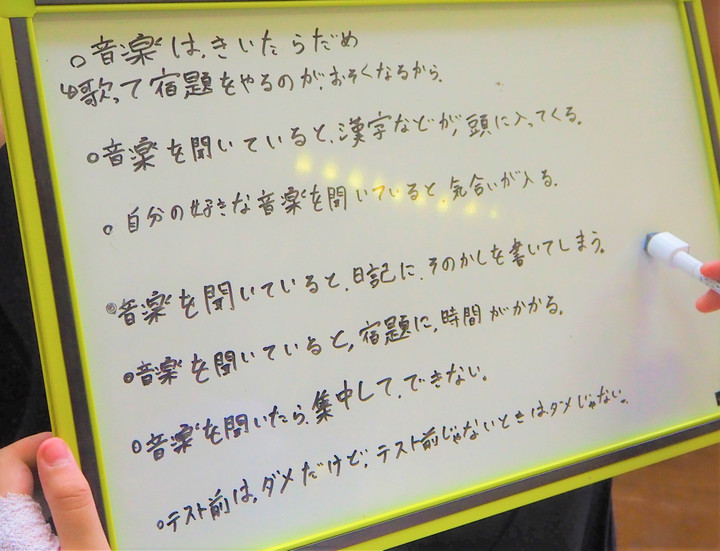 ○音楽は、きいたらだめ
↳歌って宿題をやるのが、おそくなるから。
○音楽を聞いていると、漢字などが、頭に入ってくる。
○自分の好きな音楽を聞いていると、気合いが入る。
○音楽を聞いていると、日記に、そのかしを書いてしまう。
○音楽を聞いていると、宿題に、時間がかかる。
○音楽を聞いたら、集中して、できない。
○テスト前は、ダメだけど、テスト前じゃないときは、ダメじゃない。